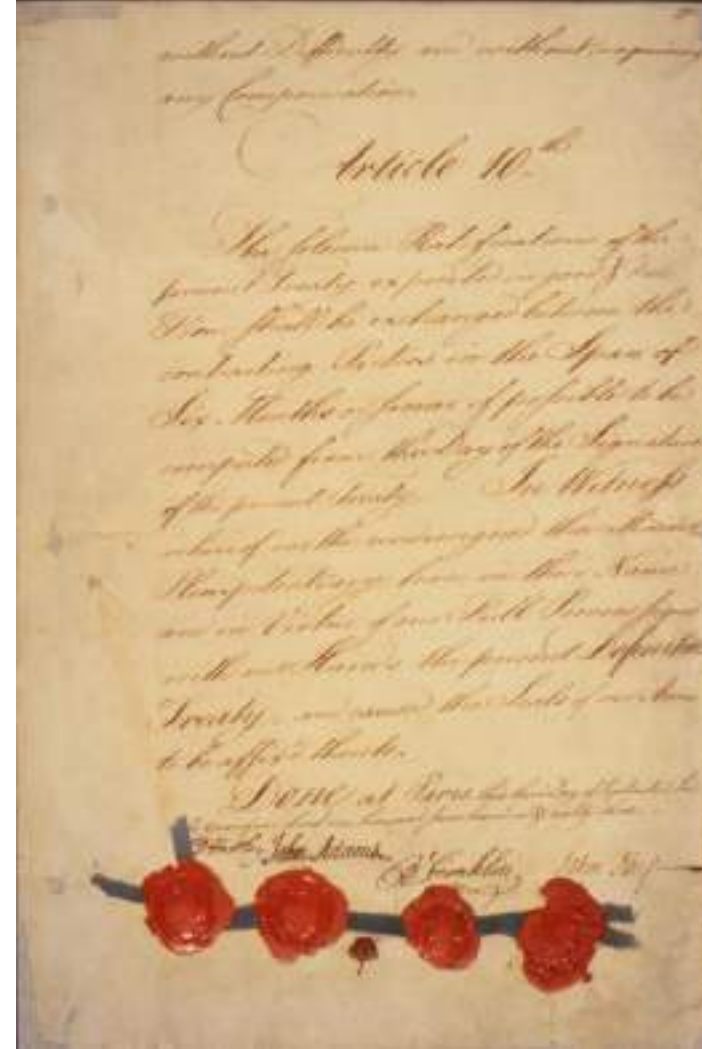 without Difficulty and without requiring
any Compensation
Article 10.th
The solemn Ratifications of the
present Treaty expedited in good & due
Form shall be exchanged between the
contracting Parties in the Space of
Six Months or sooner if possible to be
computed from the Day of the Signature
of the present Treaty. In Witness
whereof we the undersigned their
Plenipotentiary have in their Name
and in Virtue of our Full Powers
with our Hands the present
Treaty, and caused the Seals of our
to be affix'd thereto.
Done at Paris this third Day of
John Adams B Franklin John Jay